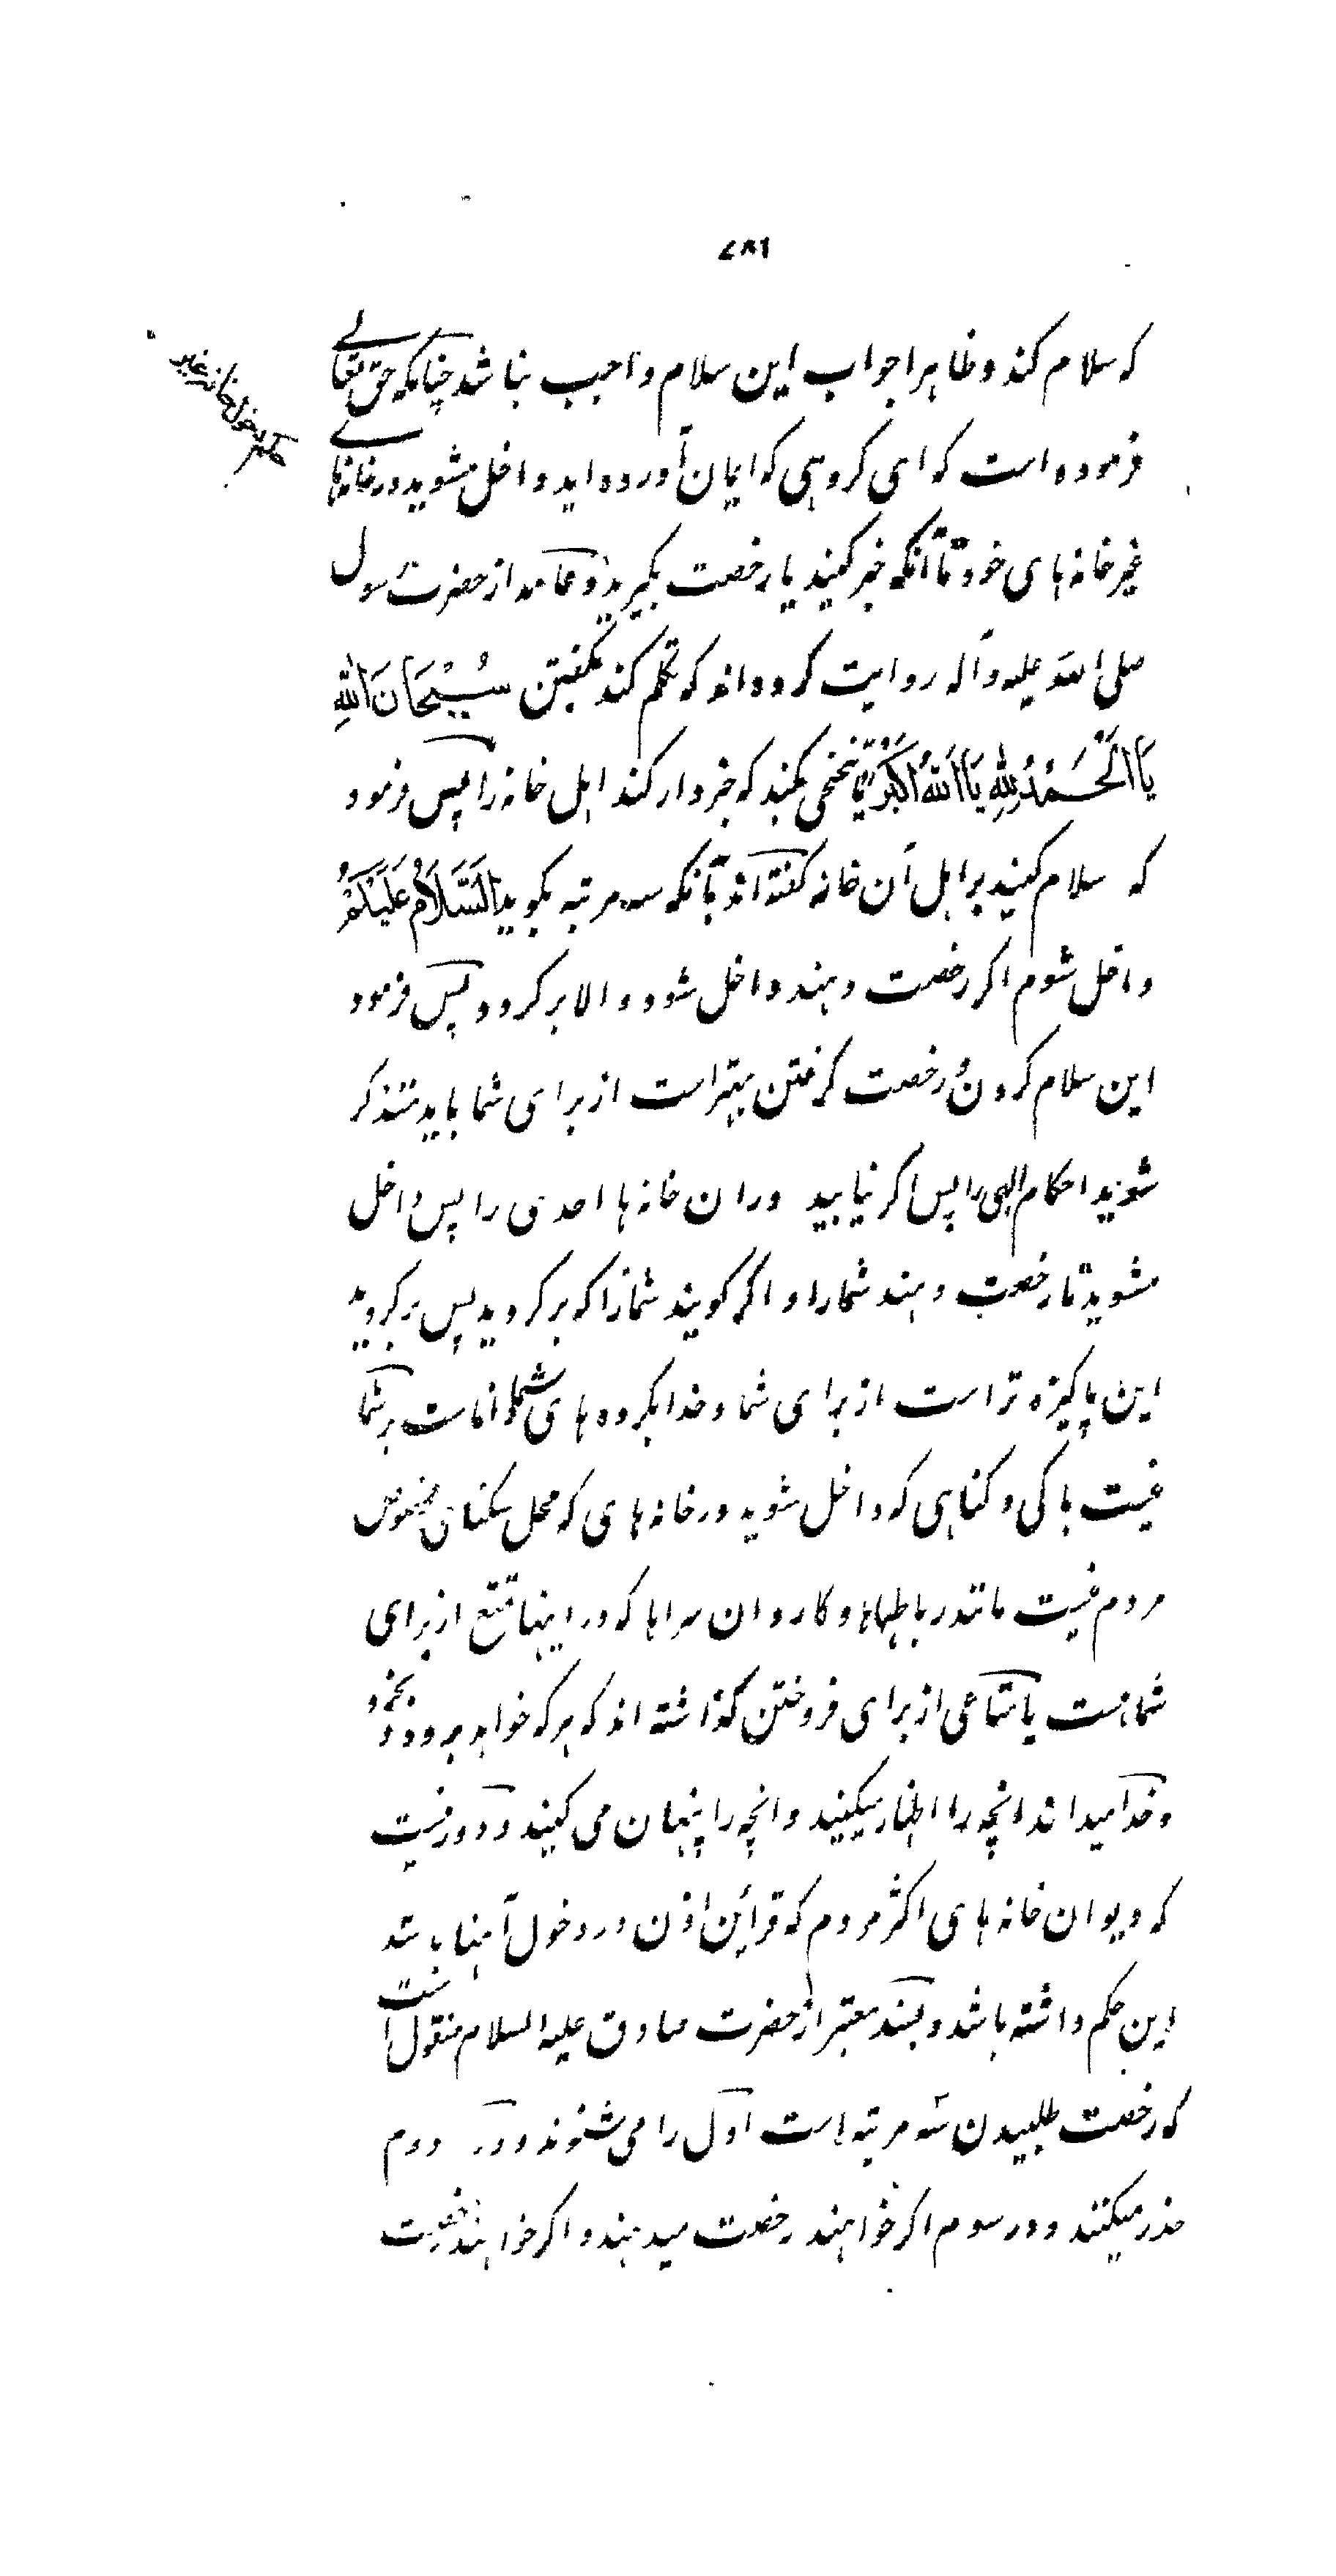 ۷۸۱
که سلام کند و ظاهرا جواب این سلام واجب نباشد چنانکه حق تعالی
فرموده است که ای کروهی که ایمان آورده اید داخل مشوید در خانهای
غیر خانه های خود تا آنکه خبر کنید یا رخصت بکیرید و عامه از حضرت رسول
صلی الله علیه و آله روایت کرده اند که تکلم کند بکفتن سُبْحَانَ اللهِ
یَا اَلْحَمْدُ لِلّٰهِ یَا اَللهُ اَکْبَرُ یا تنحنحی بکند که خبردار کند اهل خانه را پس فرمود
که سلام کنید بر اهل آن خانه کفته اند بآنکه سه مرتبه بکوید اَلسَّلَامُ عَلَیْکُمْ
داخل شوم اکر رخصت دهند داخل شود و الا برکردد پس فرمود
این سلام کردن و رخصت کرفتن بهتر است از برای شما باید متذکر
شوید احکام الهی را پس اکر نیابید در ان خانه ها احدی را پس داخل
مشوید تا رخصت دهند شما را و اکر کویند شما را که برکردید پس برکردید
این پاکیزه تر است از برای شما و خدا بکرده های شما دانا است بر شما
نیست باکی و کناهی که داخل شوید در خانه های که محل سکنای مخصوص
مردم نیست مانند رباطها و کاروان سراها که در اینها تمتع از برای
شما هست یا متاعی از برای فروختن کذاشته اند که هر که خواهد برود و بخرد
و خدا میداند انچه را اظهار میکنید و انچه را پنهان می کنید و دور نیست
که دیوان خانه های اکثر مردم که قراین اذن در دخول آنها باشد
این حکم داشته باشد و بسند معتبر از حضرت صادق علیه السلام منقول است
که رخصت طلبیدن سه مرتبه است اول را می شنوند و در دوم
حذر میکنند و در سوم اکر خواهند رخصت میدهند و اکر خواهند رخصت
حکم دخول خانه غیر